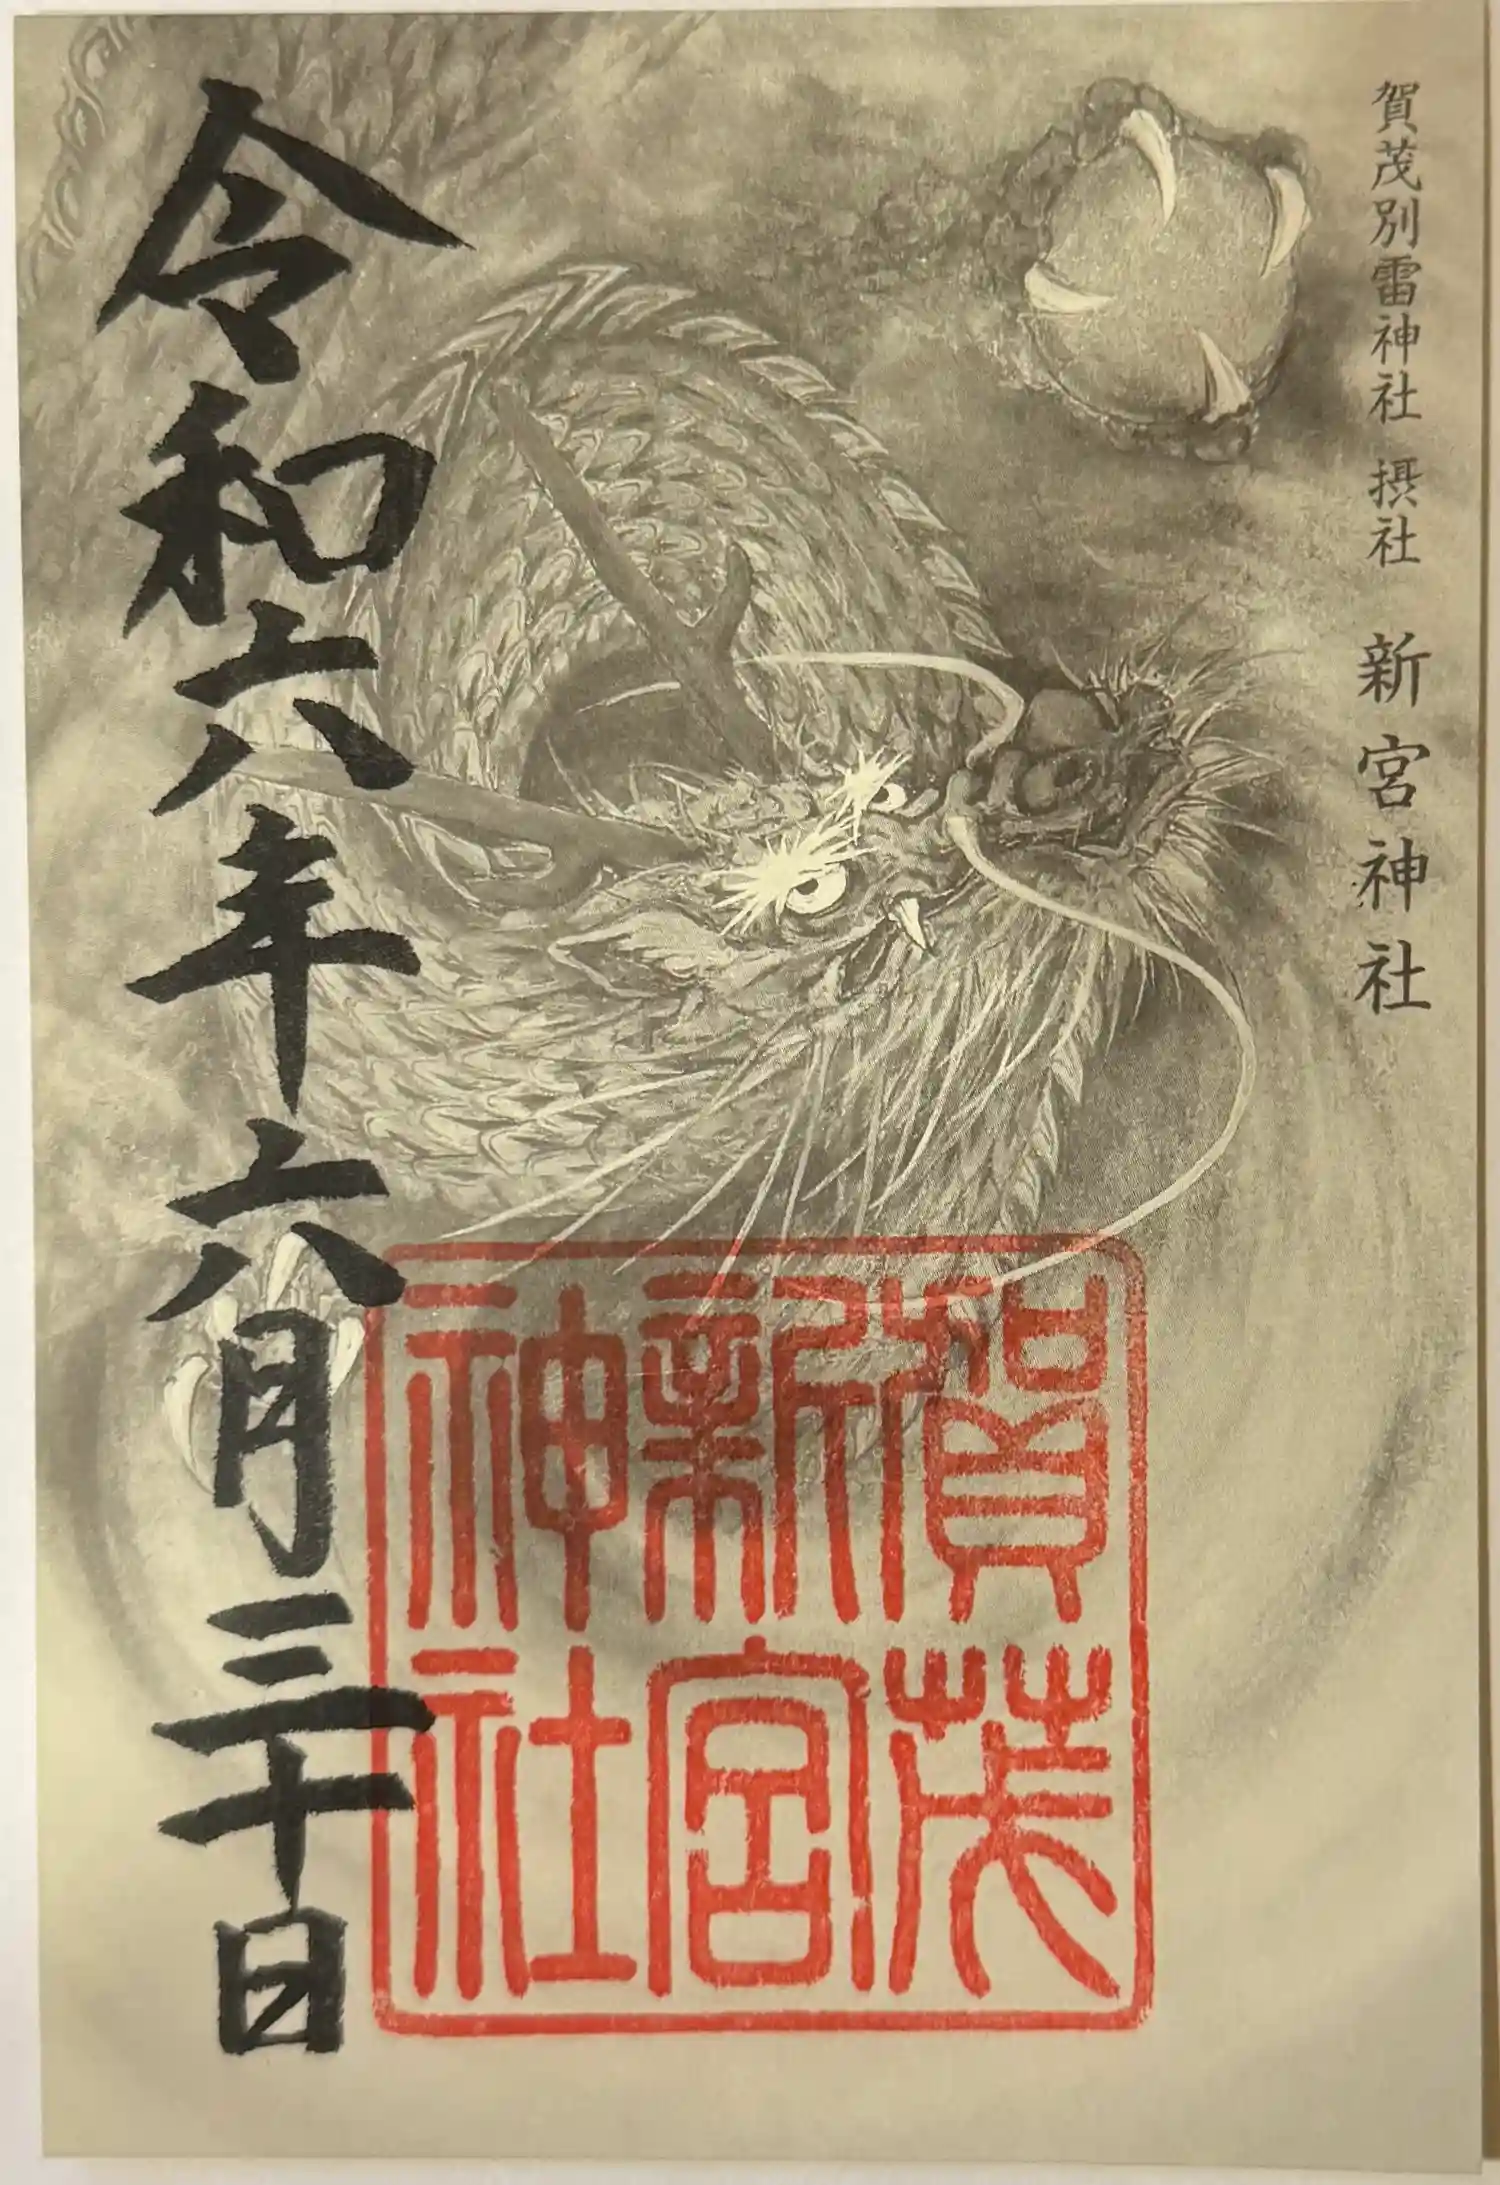 賀茂別雷神社 摂社 新宮神社
賀茂
新宮
神社
令和六年六月三十日